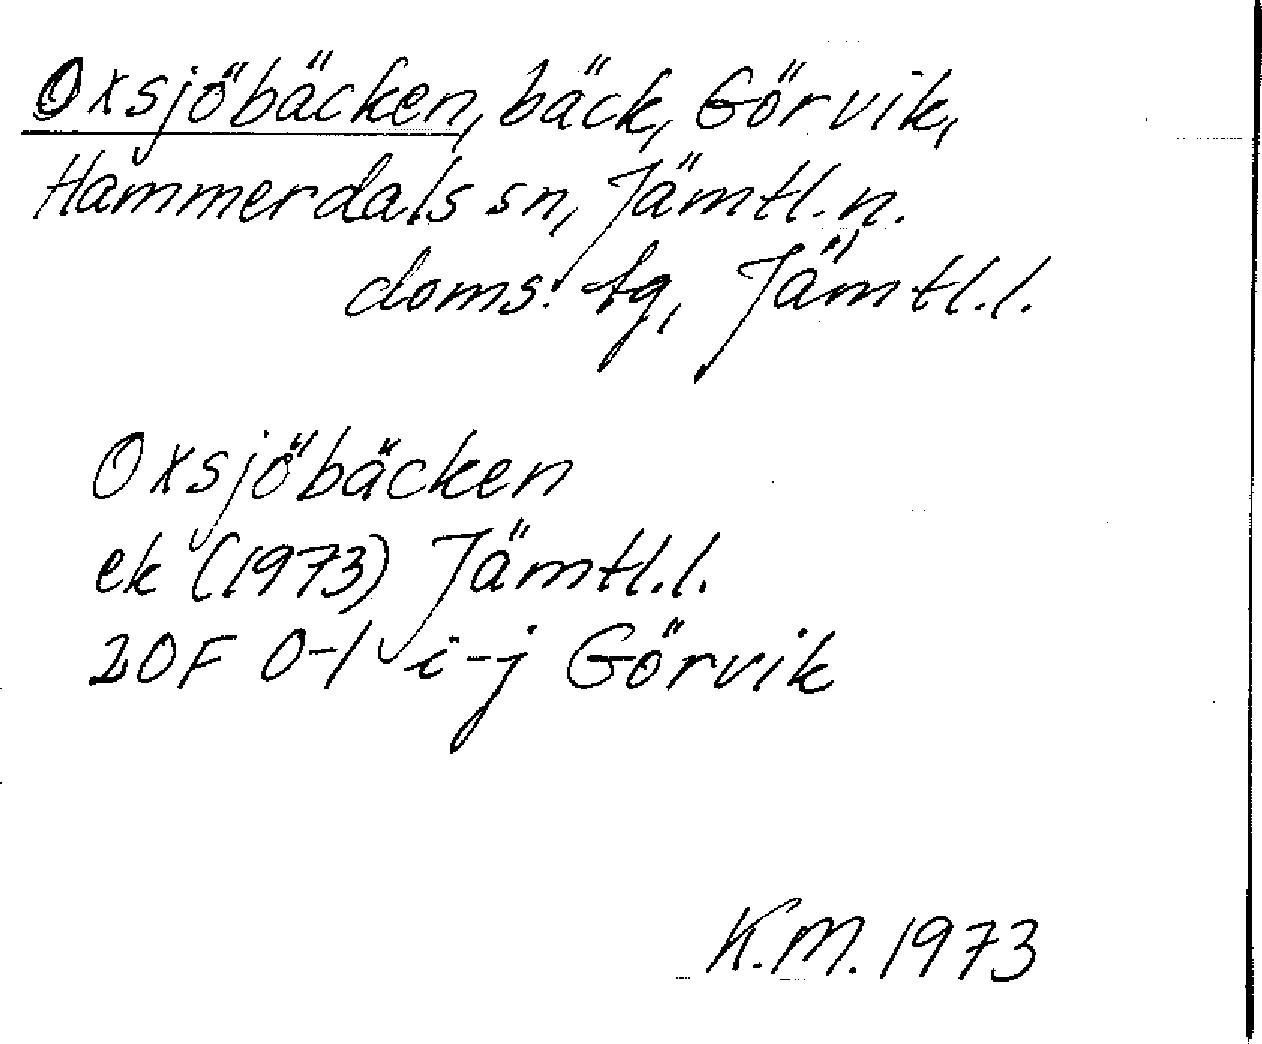 Oxsjöbäcken, bäck, Görvik,
Hammerdals sn, Jämtl. n.
doms. tg, Jämtl. l.
Oxsjöbäcken
ek (1973) Jämtl. l.
20F 0-1 i-j Görvik
K.M. 1973